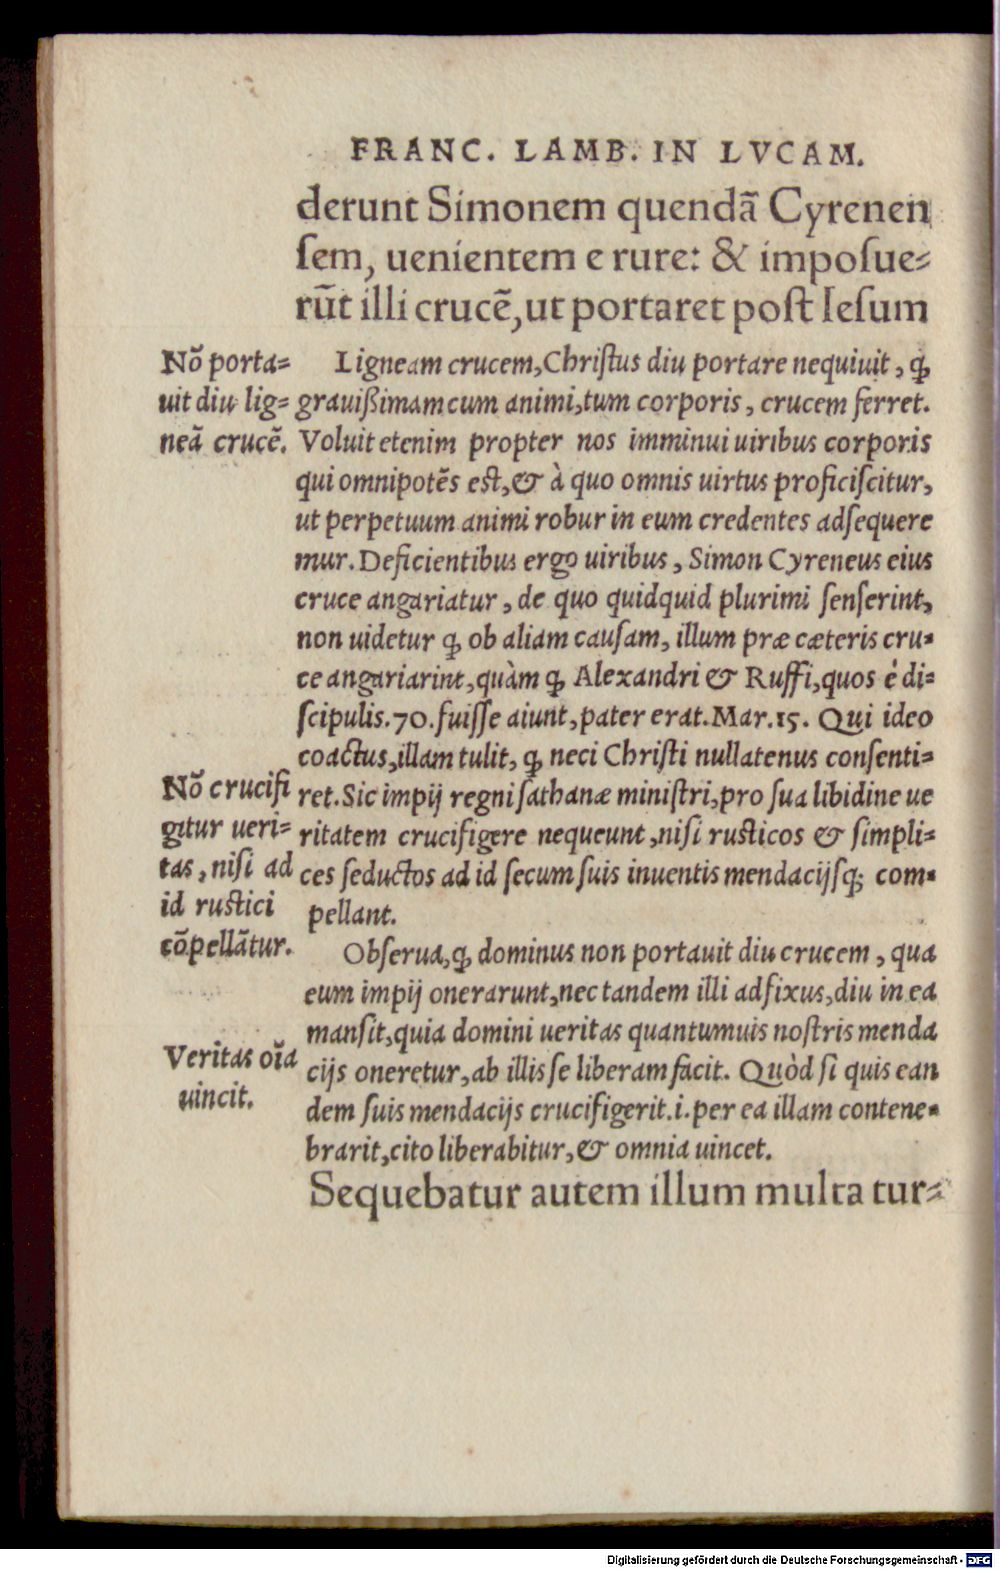 FRANC. LAMB. IN LVCAM.
derunt Simonem quendã Cyrenen
ſem, uenientem e rure: & impoſue-
rũt illi crucẽ, ut portaret poſt Ieſum
Nõ porta-
uit diu lig-
neã crucẽ.
Ligneam crucem, Chriſtus diu portare nequiuit, ꝙ
grauißimam cum animi, tum corporis, crucem ferret.
Voluit etenim propter nos imminui uiribus corporis
qui omnipotẽs est, & à quo omnis uirtus proficiſcitur,
ut perpetuum animi robur in eum credentes adſequere
mur. Deficientibus ergo uiribus, Simon Cyreneus eius
cruce angariatur, de quo quidquid plurimi ſenſerint,
non uidetur ꝙ ob aliam cauſam, illum præ cæteris cru-
ce angariarint, quàm ꝙ Alexandri & Ruffi, quos è di-
ſcipulis. 70. fuiſſe aiunt, pater erat. Mar. 15. Qui ideo
coactus, illam tulit, ꝙ neci Chriſti nullatenus conſenti-
ret. Sic impij regni ſathanæ miniſtri, pro ſua libidine ue
ritatem crucifigere nequeunt, niſi rusticos & ſimpli-
ces ſeductos ad id ſecum ſuis inuentis mendacijsꝗ; com-
pellant.
Nõ crucifi
gitur ueri-
tas, niſi ad
id rustici
cõpellãtur.
Obſerua, ꝙ dominus non portauit diu crucem, qua
eum impij onerarunt, nec tandem illi adfixus, diu in ea
manſit, quia domini ueritas quantumuis noſtris menda
cijs oneretur, ab illis ſe liberam facit. Quòd ſi quis ean
dem ſuis mendacijs crucifigerit. i. per ea illam contene-
brarit, cito liberabitur, & omnia uincet.
Veritas oĩa
uincit.
Sequebatur autem illum multa tur-
Digitalisierung gefördert durch die Deutsche Forschungsgemeinschaft - DFG